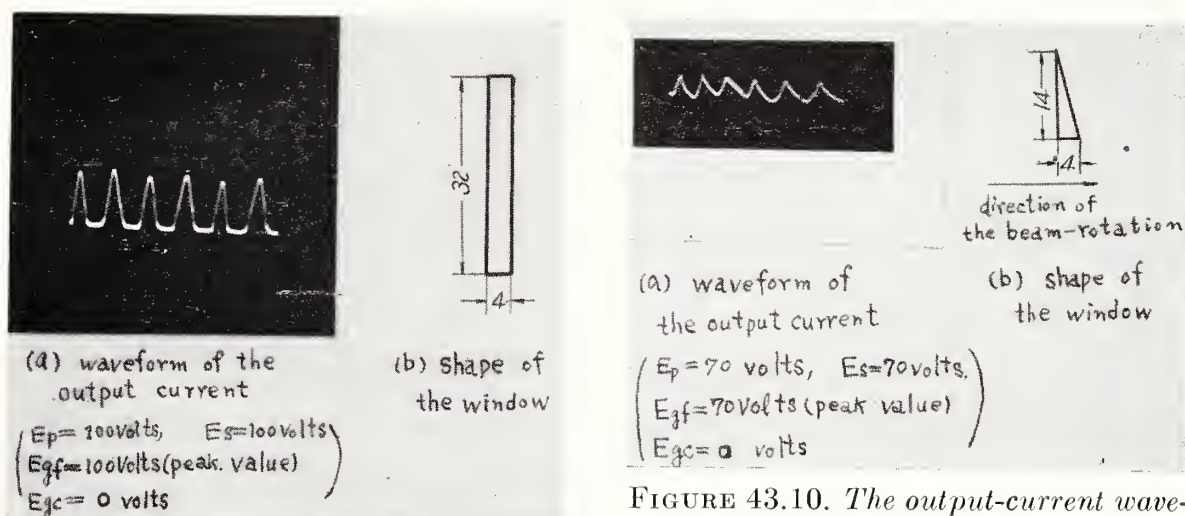 32
4
(a) waveform of the
output current
(b) shape of
the window
Ep= 100volts, Es=100volts
Egf=100Volts(peak. value)
Egc= 0 volts
14
4
direction of
the beam-rotation
(a) waveform of
the output current
(b) shape of
the window
Ep=70 volts, Es=70volts,
Egf=70Volts (peak value)
Egc= 0 volts
FIGURE 43.10. The output-current wave-